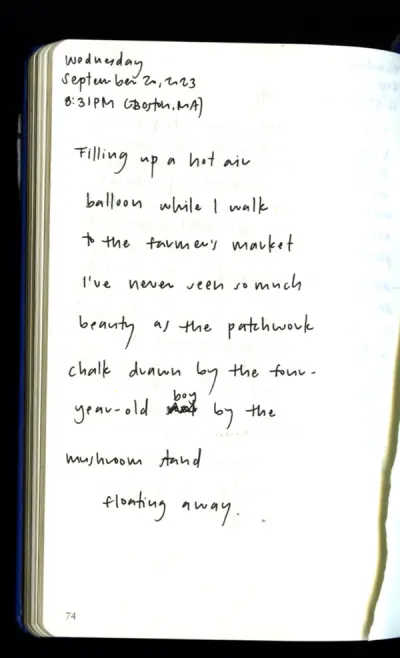 Wednesday
September 20, 2023
8:31PM (Boston, MA)
Filling up a hot air
balloon while I walk
to the farmer's market
I've never seen so much
beauty as the patchwork
chalk drawn by the four-
year-old boy by the
mushroom stand
floating away.
74